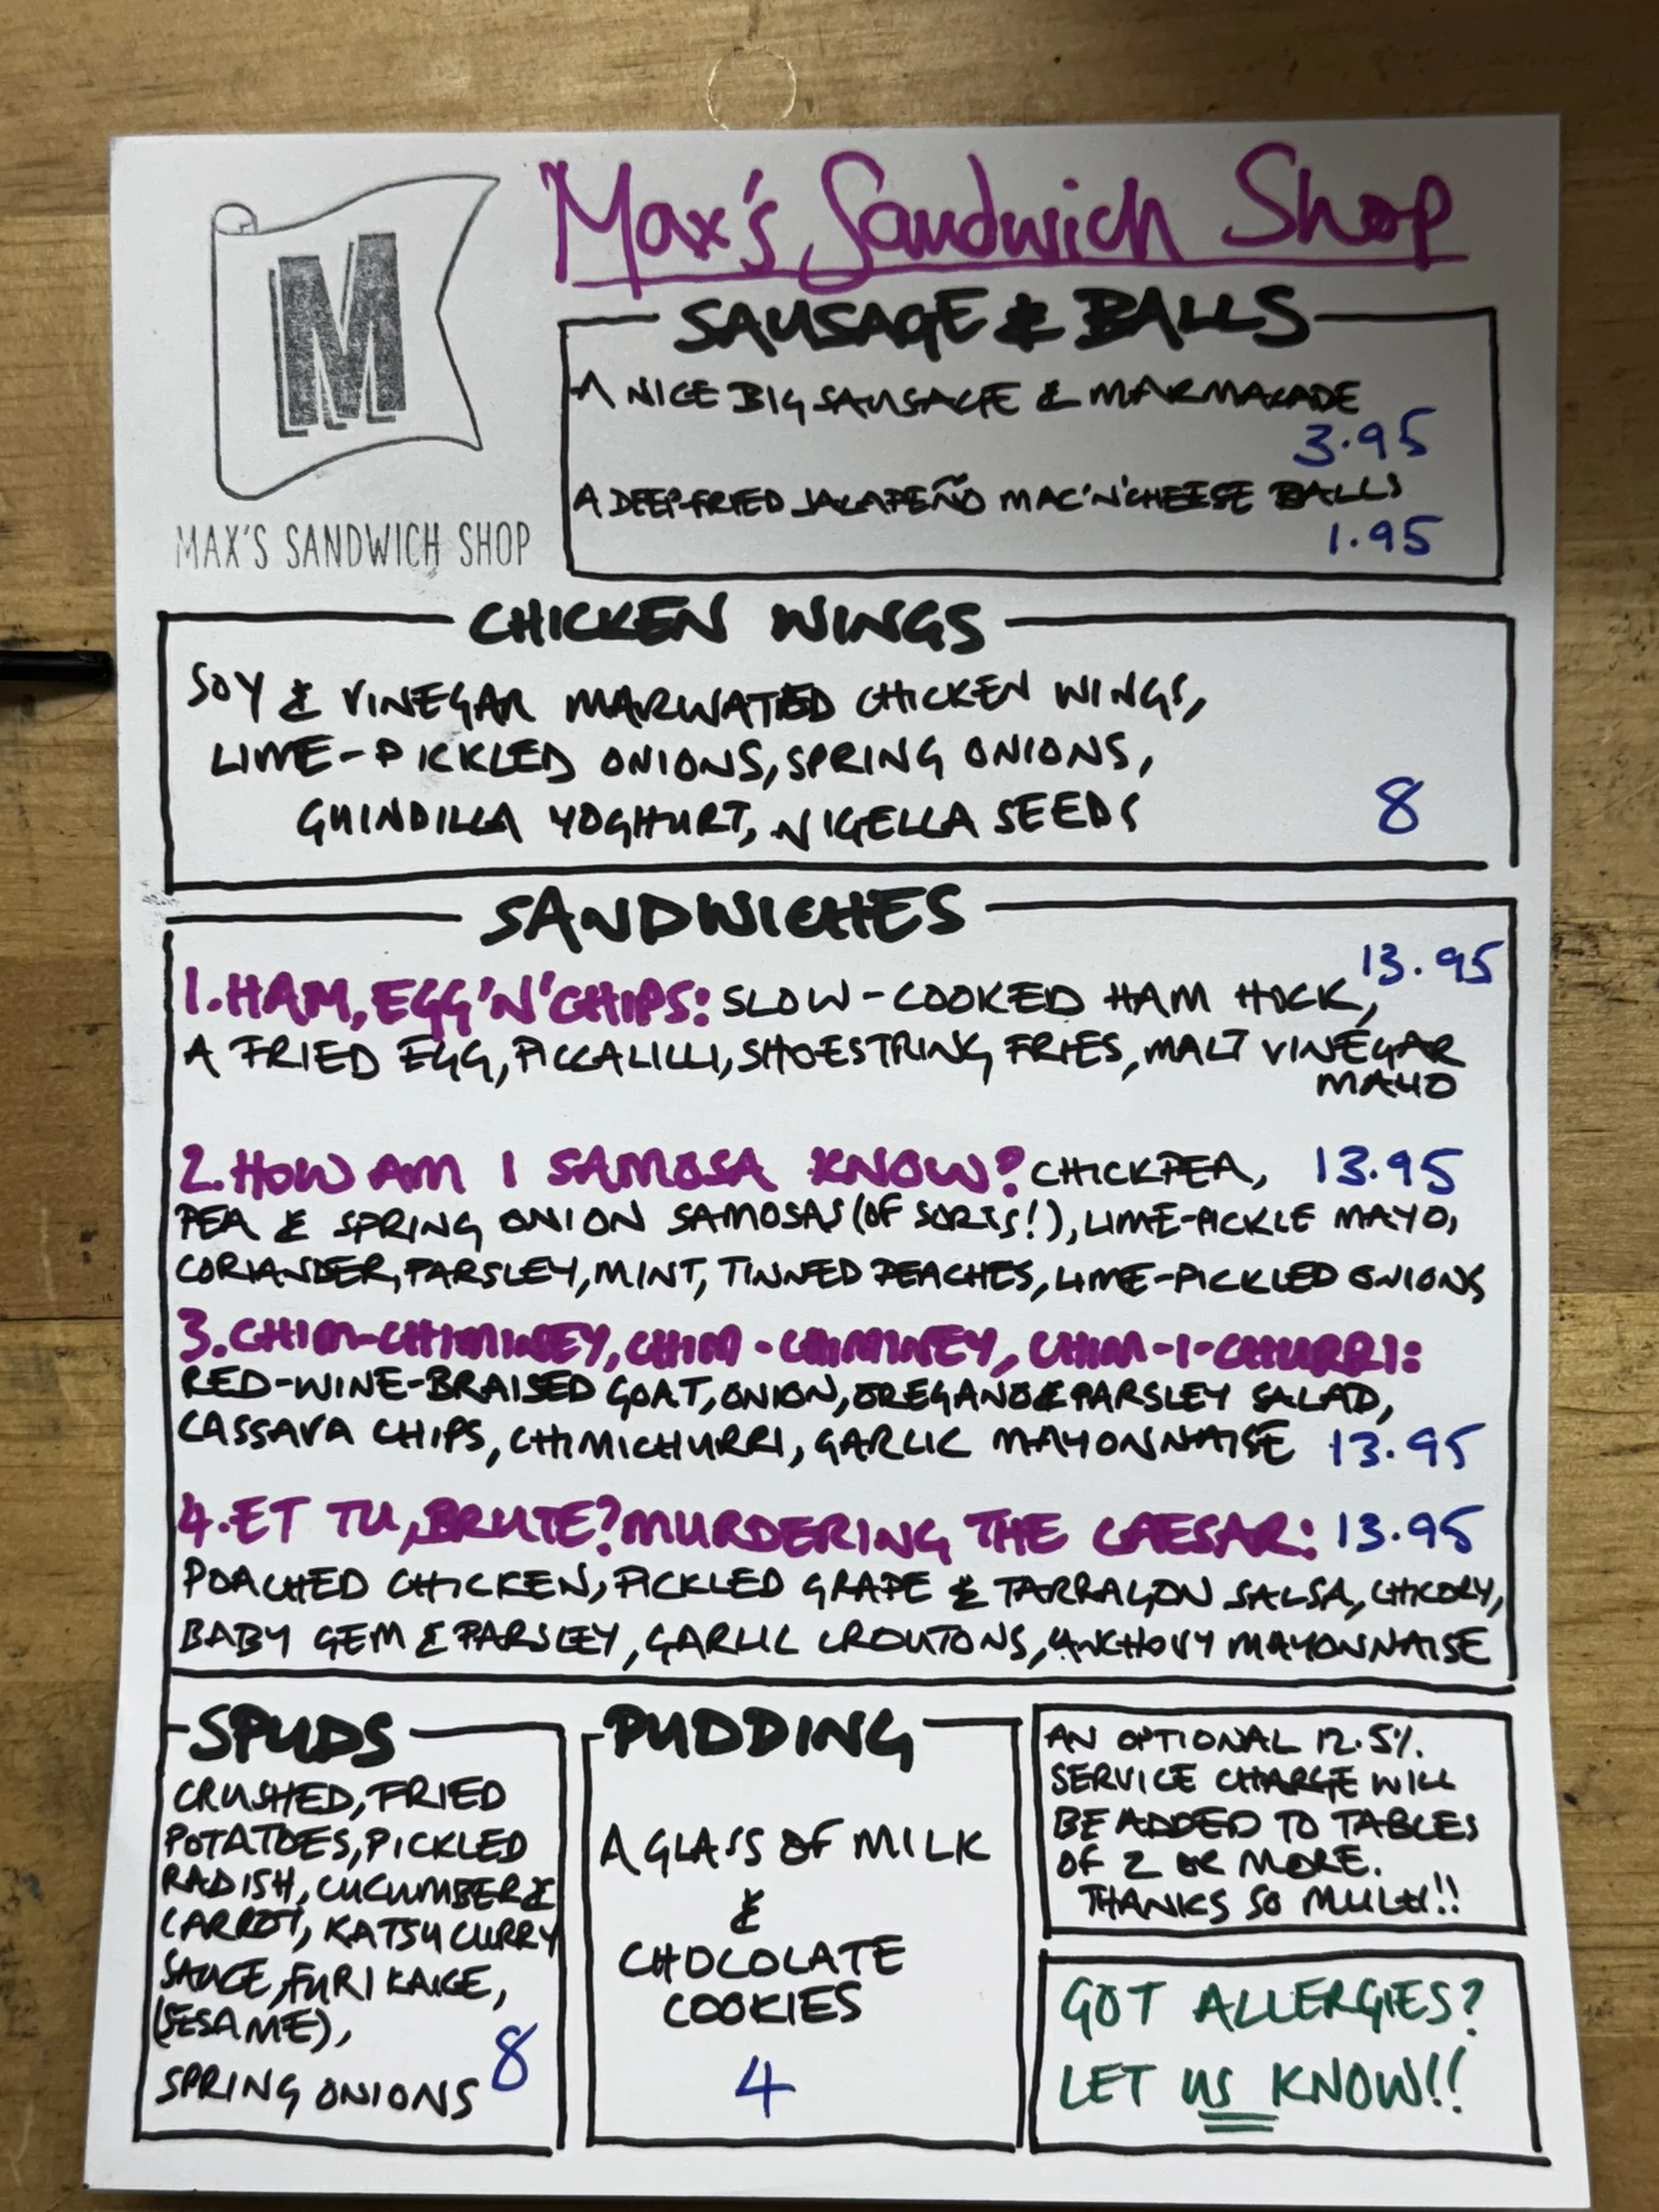 Max's Sandwich Shop
M
MAX'S SANDWICH SHOP
SAUSAGE & BALLS
A NICE BIG SAUSAGE & MARMALADE
3.95
A DEEP-FRIED JALAPEÑO MAC'N'CHEESE BALLS
1.95
CHICKEN WINGS
SOY & VINEGAR MARINATED CHICKEN WINGS,
LIME-PICKLED ONIONS, SPRING ONIONS,
GUINDILLA YOGHURT, NIGELLA SEEDS
8
SANDWICHES
13.95
1. HAM, EGG 'N' CHIPS: SLOW-COOKED HAM HOCK,
A FRIED EGG, PICCALILLI, SHOESTRING FRIES, MALT VINEGAR
MAYO
2. HOW AM I SAMOSA KNOW? CHICKPEA, 13.95
PEA & SPRING ONION SAMOSAS (OF SORTS!), LIME-PICKLE MAYO,
CORIANDER, PARSLEY, MINT, TINNED PEACHES, LIME-PICKLED ONIONS
3. CHIM-CHIMINEY, CHIM-CHIMINEY, CHIM-I-CHURRI:
RED-WINE-BRAISED GOAT, ONION, OREGANO & PARSLEY SALAD,
CASSAVA CHIPS, CHIMICHURRI, GARLIC MAYONNAISE 13.95
4. ET TU, BRUTE? MURDERING THE CAESAR: 13.95
POACHED CHICKEN, PICKLED GRAPE & TARRAGON SALSA, CHICORY,
BABY GEM & PARSLEY, GARLIC CROUTONS, ANCHOVY MAYONNAISE
SPUDS
CRUSHED, FRIED
POTATOES, PICKLED
RADISH, CUCUMBER &
CARROT, KATSU CURRY
SAUCE, FURIKAKE,
(SESAME),
SPRING ONIONS 8
PUDDING
A GLASS OF MILK
&
CHOCOLATE
COOKIES
4
AN OPTIONAL 12.5%
SERVICE CHARGE WILL
BE ADDED TO TABLES
OF 2 OR MORE.
THANKS SO MUCH!!
GOT ALLERGIES?
LET US KNOW!!